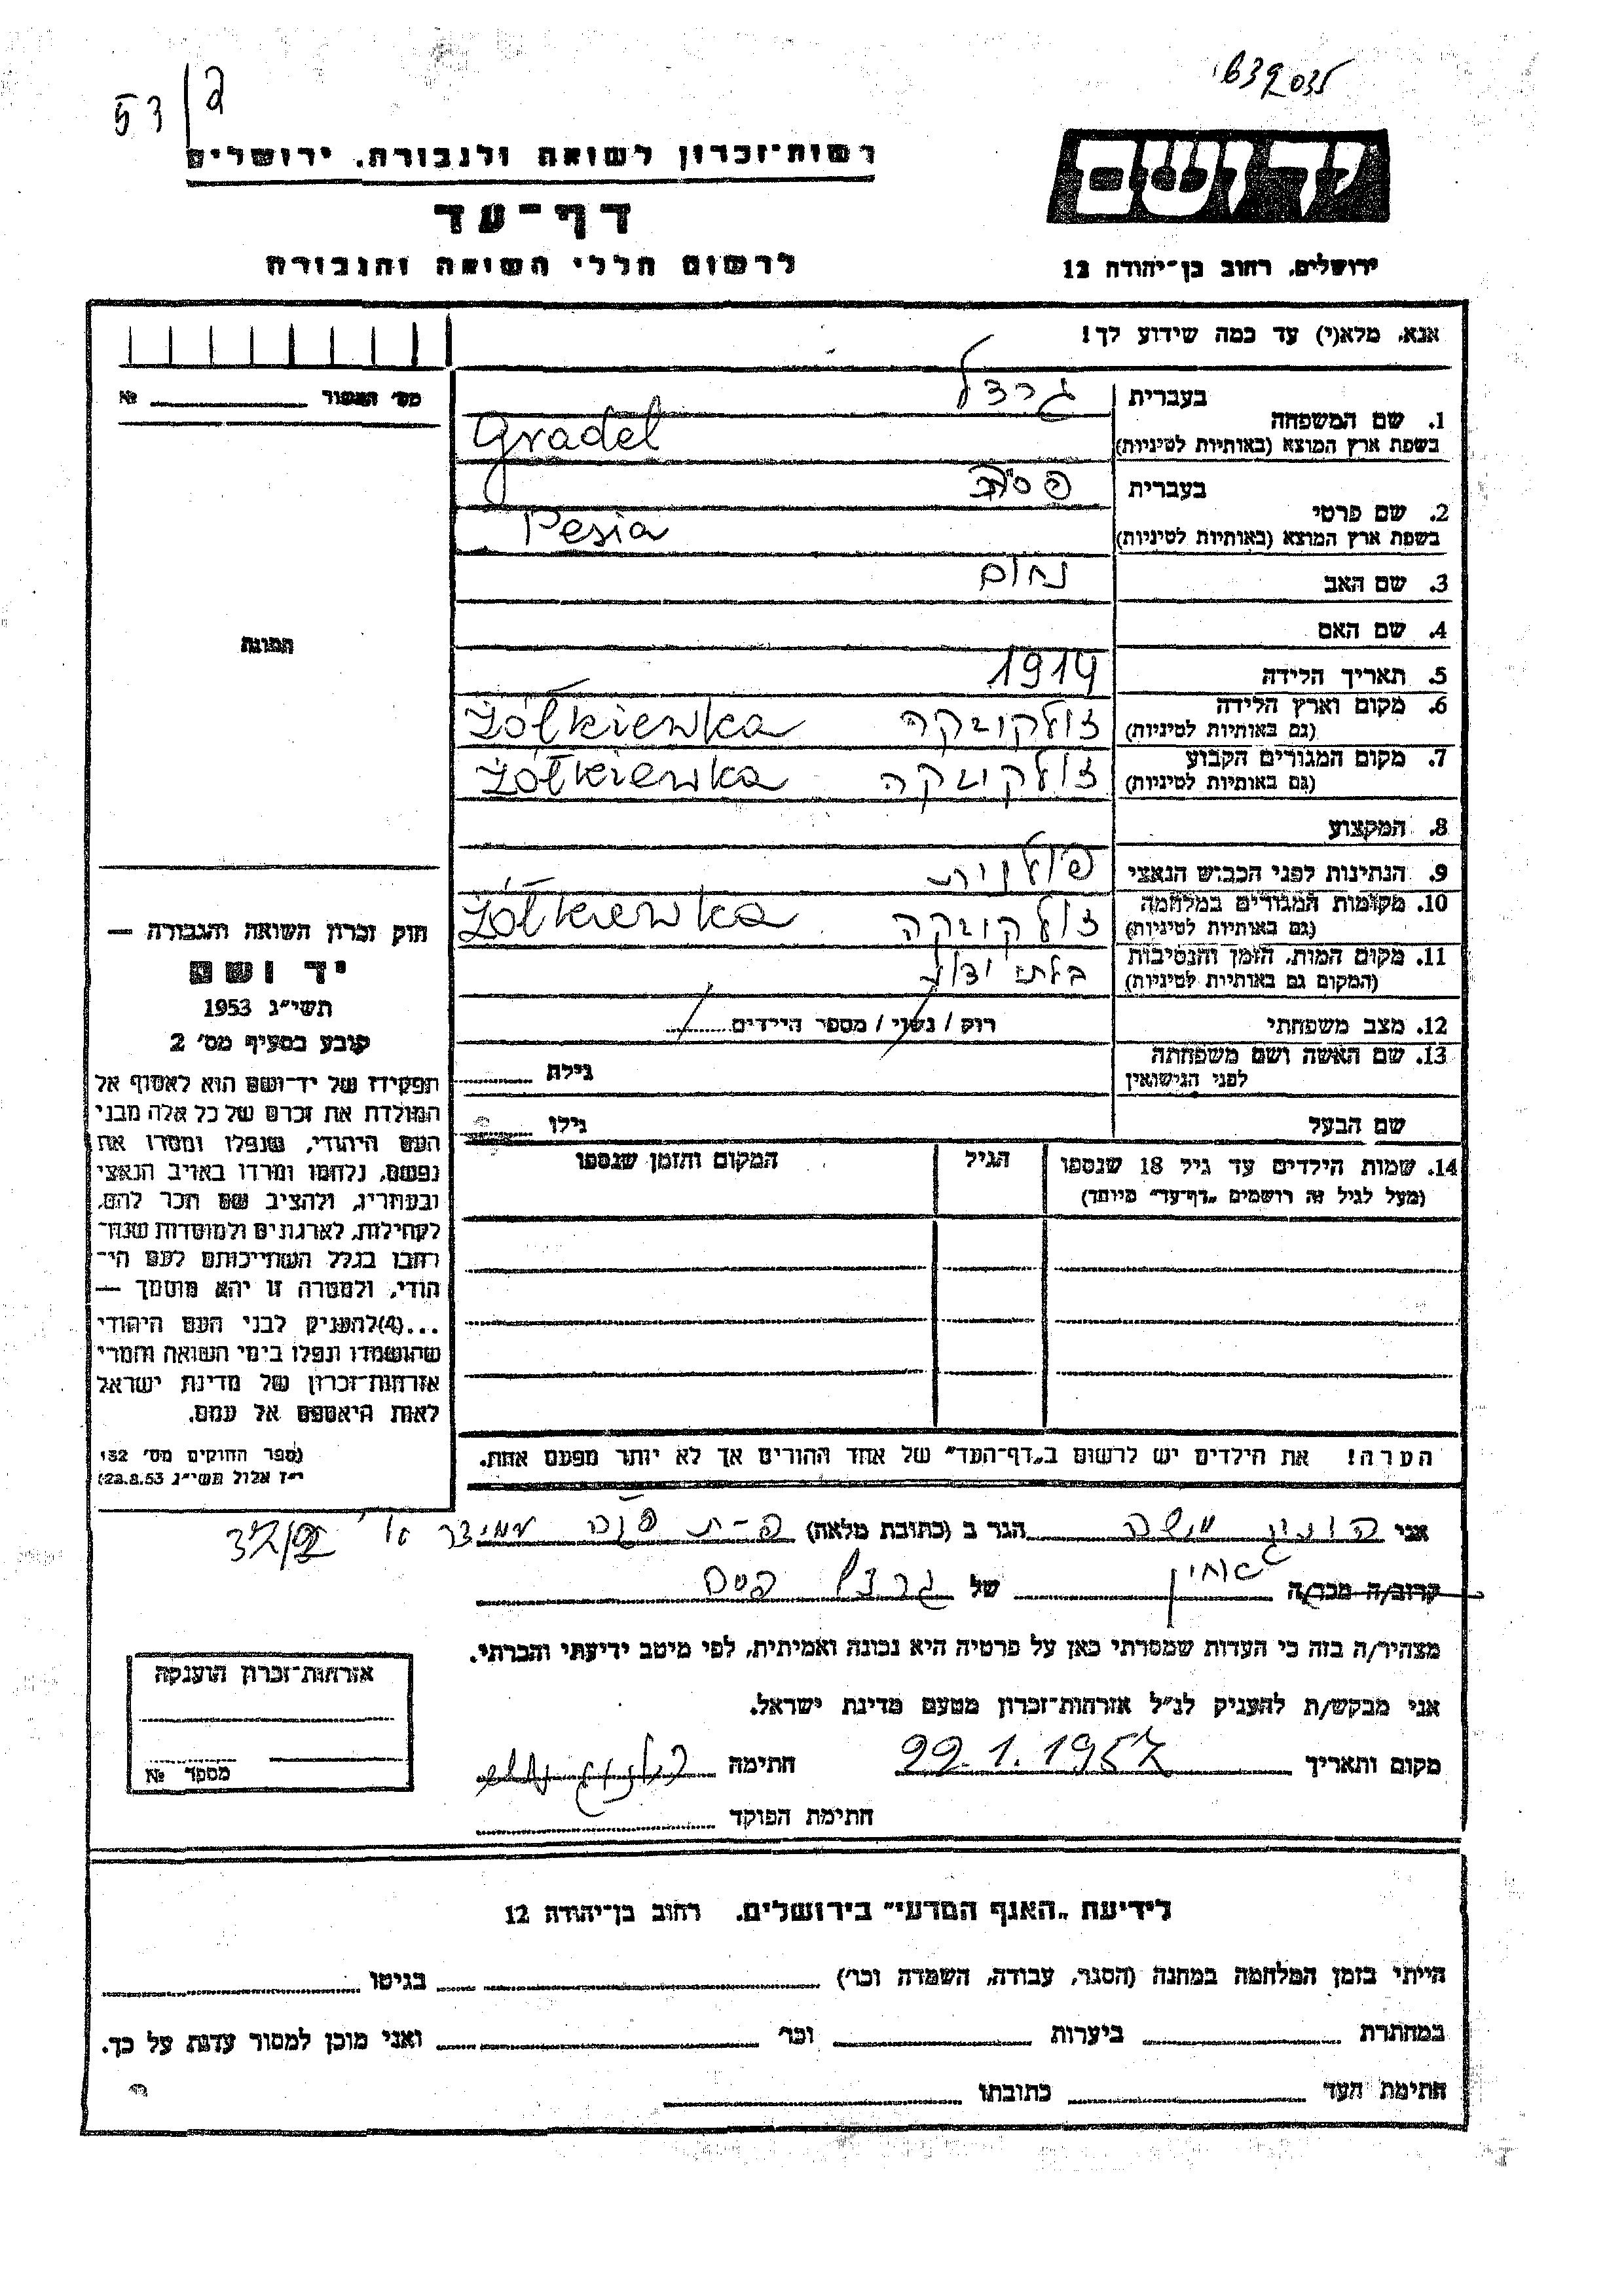 53/2
1639035
יד ושם
רשות־זכרון לשואה ולגבורה, ירושלים
דף־עד
לרשום חללי השואה והגבורה
ירושלים, רחוב בן־יהודה 12
אנא, מלא(י) עד כמה שידוע לך!
מס' האשור № ________
1. שם המשפחה
בעברית גרדל
בשפת ארץ המוצא (באותיות לטיניות) Gradel
2. שם פרטי
בעברית
בשפת ארץ המוצא (באותיות לטיניות) Pesia
3. שם האב נחום
4. שם האם
5. תאריך הלידה 1914
6. מקום וארץ הלידה
(גם באותיות לטיניות) זולקויבקה Żółkiewka
7. מקום המגורים הקבוע
(גם באותיות לטיניות) זולקויבקה Żółkiewka
8. המקצוע
9. הנתינות לפני הכבוש הנאצי פולנית
10. מקומות המגורים במלחמה
(גם באותיות לטיניות) זולקויבקה Żółkiewka
11. מקום המות, הזמן והנסיבות
(המקום גם באותיות לטיניות) בלתי ידוע
12. מצב משפחתי רוק / נשוי / מספר הילדים
13. שם האשה ושם משפחתה
לפני הנישואין גילה
שם הבעל גילו
14. שמות הילדים עד גיל 18 שנספו הגיל המקום והזמן שנספו
(מעל לגיל זה רושמים „דף־עד" מיוחד)
הערה! את הילדים יש לרשום ב„דף־העד" של אחד ההורים אך לא יותר מפעם אחת.
תמונה
חוק זכרון השואה והגבורה —
יד ושם
תשי"ג 1953
קובע בסעיף מס' 2
תפקידו של יד־ושם הוא לאסוף אל
המולדת את זכרם של כל אלה מבני
העם היהודי, שנפלו ומסרו את
נפשם, נלחמו ומרדו באויב הנאצי
ובעוזריו, ולהציב שם וזכר להם,
לקהילות, לארגונים ולמוסדות שנח־
רבו בגלל השתייכותם לעם הי־
הודי, ולמטרה זו יהא מוסמך —
...(4)להעניק לבני העם היהודי
שהושמדו ונפלו בימי השואה והמרי
אזרחות־זכרון של מדינת ישראל
לאות היאספם אל עמם.
(ספר החוקים מס' 132
י"ז אלול תשי"ג 28.8.53)
אני משה הגר ב (כתובת מלאה)
קרוב/ה מכר/ה של גרדל
מצהיר/ה בזה כי העדות שמסרתי כאן על פרטיה היא נכונה ואמיתית, לפי מיטב ידיעתי והכרתי.
אני מבקש/ת להעניק לנ"ל אזרחות־זכרון מטעם מדינת ישראל.
מקום ותאריך 22.1.1957 חתימה
חתימת הפוקד
אזרחות־זכרון הוענקה
מספר №
לידיעת „האגף המדעי" בירושלים, רחוב בן־יהודה 12
הייתי בזמן המלחמה במחנה (הסגר, עבודה, השמדה וכו') בגיטו
במחתרת ביערות וכו' ואני מוכן למסור עדות על כך.
חתימת העד כתובתו